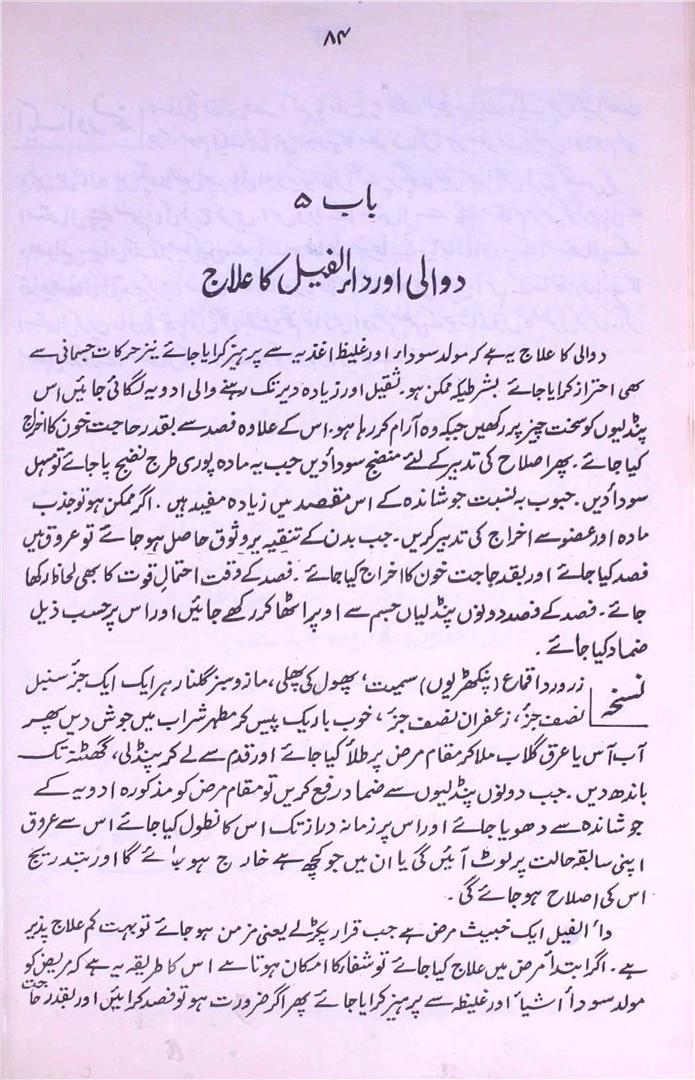 ۸۴
باب ۵
دوالی اور داء الفیل کا علاج
دوالی کا علاج یہ ہے کہ مولد سوداء اور غلیظ اغذیہ سے پرہیز کرایا جائے نیز حرکات جسمانی سے
بھی احتراز کرایا جائے بشرطیکہ ممکن ہو۔ ثقیل اور زیادہ دیر تک رہنے والی ادویہ لگائی جائیں اس
پنڈلیوں کو سخت چیز پر رکھیں جبکہ وہ آرام کر رہا ہو۔ اس کے علاوہ فصد سے بقدر حاجت خون کا اخراج
کیا جائے۔ پھر اصلاح کی تدبیر کے لئے منضج سودا دیں جب یہ مادہ پوری طرح نضج پا جائے تو مسہل
سودا دیں۔ حبوب بہ نسبت جوشاندہ کے اس مقصد میں زیادہ مفید ہیں۔ اگر ممکن ہو تو جذب
مادہ اور عضو سے اخراج کی تدبیر کریں۔ جب بدن کے تنقیہ پر وثوق حاصل ہو جائے تو عروق میں
فصد کیا جائے اور بقدر حاجت خون کا اخراج کیا جائے۔ فصد کے وقت احتمال قوت کا بھی لحاظ رکھا
جائے۔ فصد کے فصد دونوں پنڈلیاں جسم سے اوپر اٹھا کر رکھے جائیں اور اس پر حسب ذیل
ضماد کیا جائے۔
نسخہ زرورد اقماع (پنکھڑیوں) سمیت، پھول کی پھلی، مازو سبز گلنار ہر ایک ایک جزء سنبل
نصف جزء، زعفران نصف جزء، خوب باریک پیس کر مطہر شراب میں جوش دیں پھر
آب آس یا عرق گلاب ملا کر مقام مرض پر طلاء کیا جائے اور قدم سے لے کر پنڈلی، گھٹنہ تک
باندھ دیں۔ جب دونوں پنڈلیوں سے ضماد رفع کریں تو مقام مرض کو مذکورہ ادویہ کے
جوشاندہ سے دھویا جائے اور اس پر زمانہ دراز تک اس کا نطول کیا جائے اس سے عروق
اپنی سابقہ حالت پر لوٹ آئیں گی یا ان میں جو کچھ ہے خارج ہو جائے گا اور بتدریج
اس کی اصلاح ہو جائے گی۔
داء الفیل ایک خبیث مرض ہے جب قرار پکڑلے یعنی مزمن ہو جائے تو بہت کم علاج پذیر
ہے۔ اگر ابتداء مرض میں علاج کیا جائے تو شفاء کا امکان ہوتا ہے اس کا طریقہ یہ ہے کہ مریض کو
مولد سوداء اشیاء اور غلیظہ سے پرہیز کرایا جائے پھر اگر ضرورت ہو تو فصد کرائیں اور بقدر حاجت